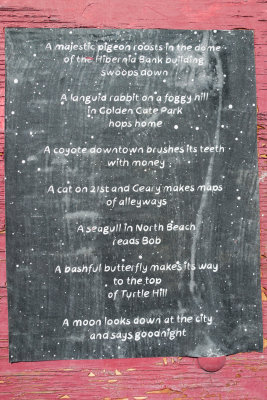 A majestic pigeon roosts in the dome
of the Hibernia Bank building
swoops down
A languid rabbit on a foggy hill
in Golden Gate Park
hops home
A coyote downtown brushes its teeth
with money
A cat on 21st and Geary makes maps
of alleyways
A seagull in North Beach
reads Bob
A bashful butterfly makes its way
to the top
of Turtle Hill
A moon looks down at the city
and says goodnight